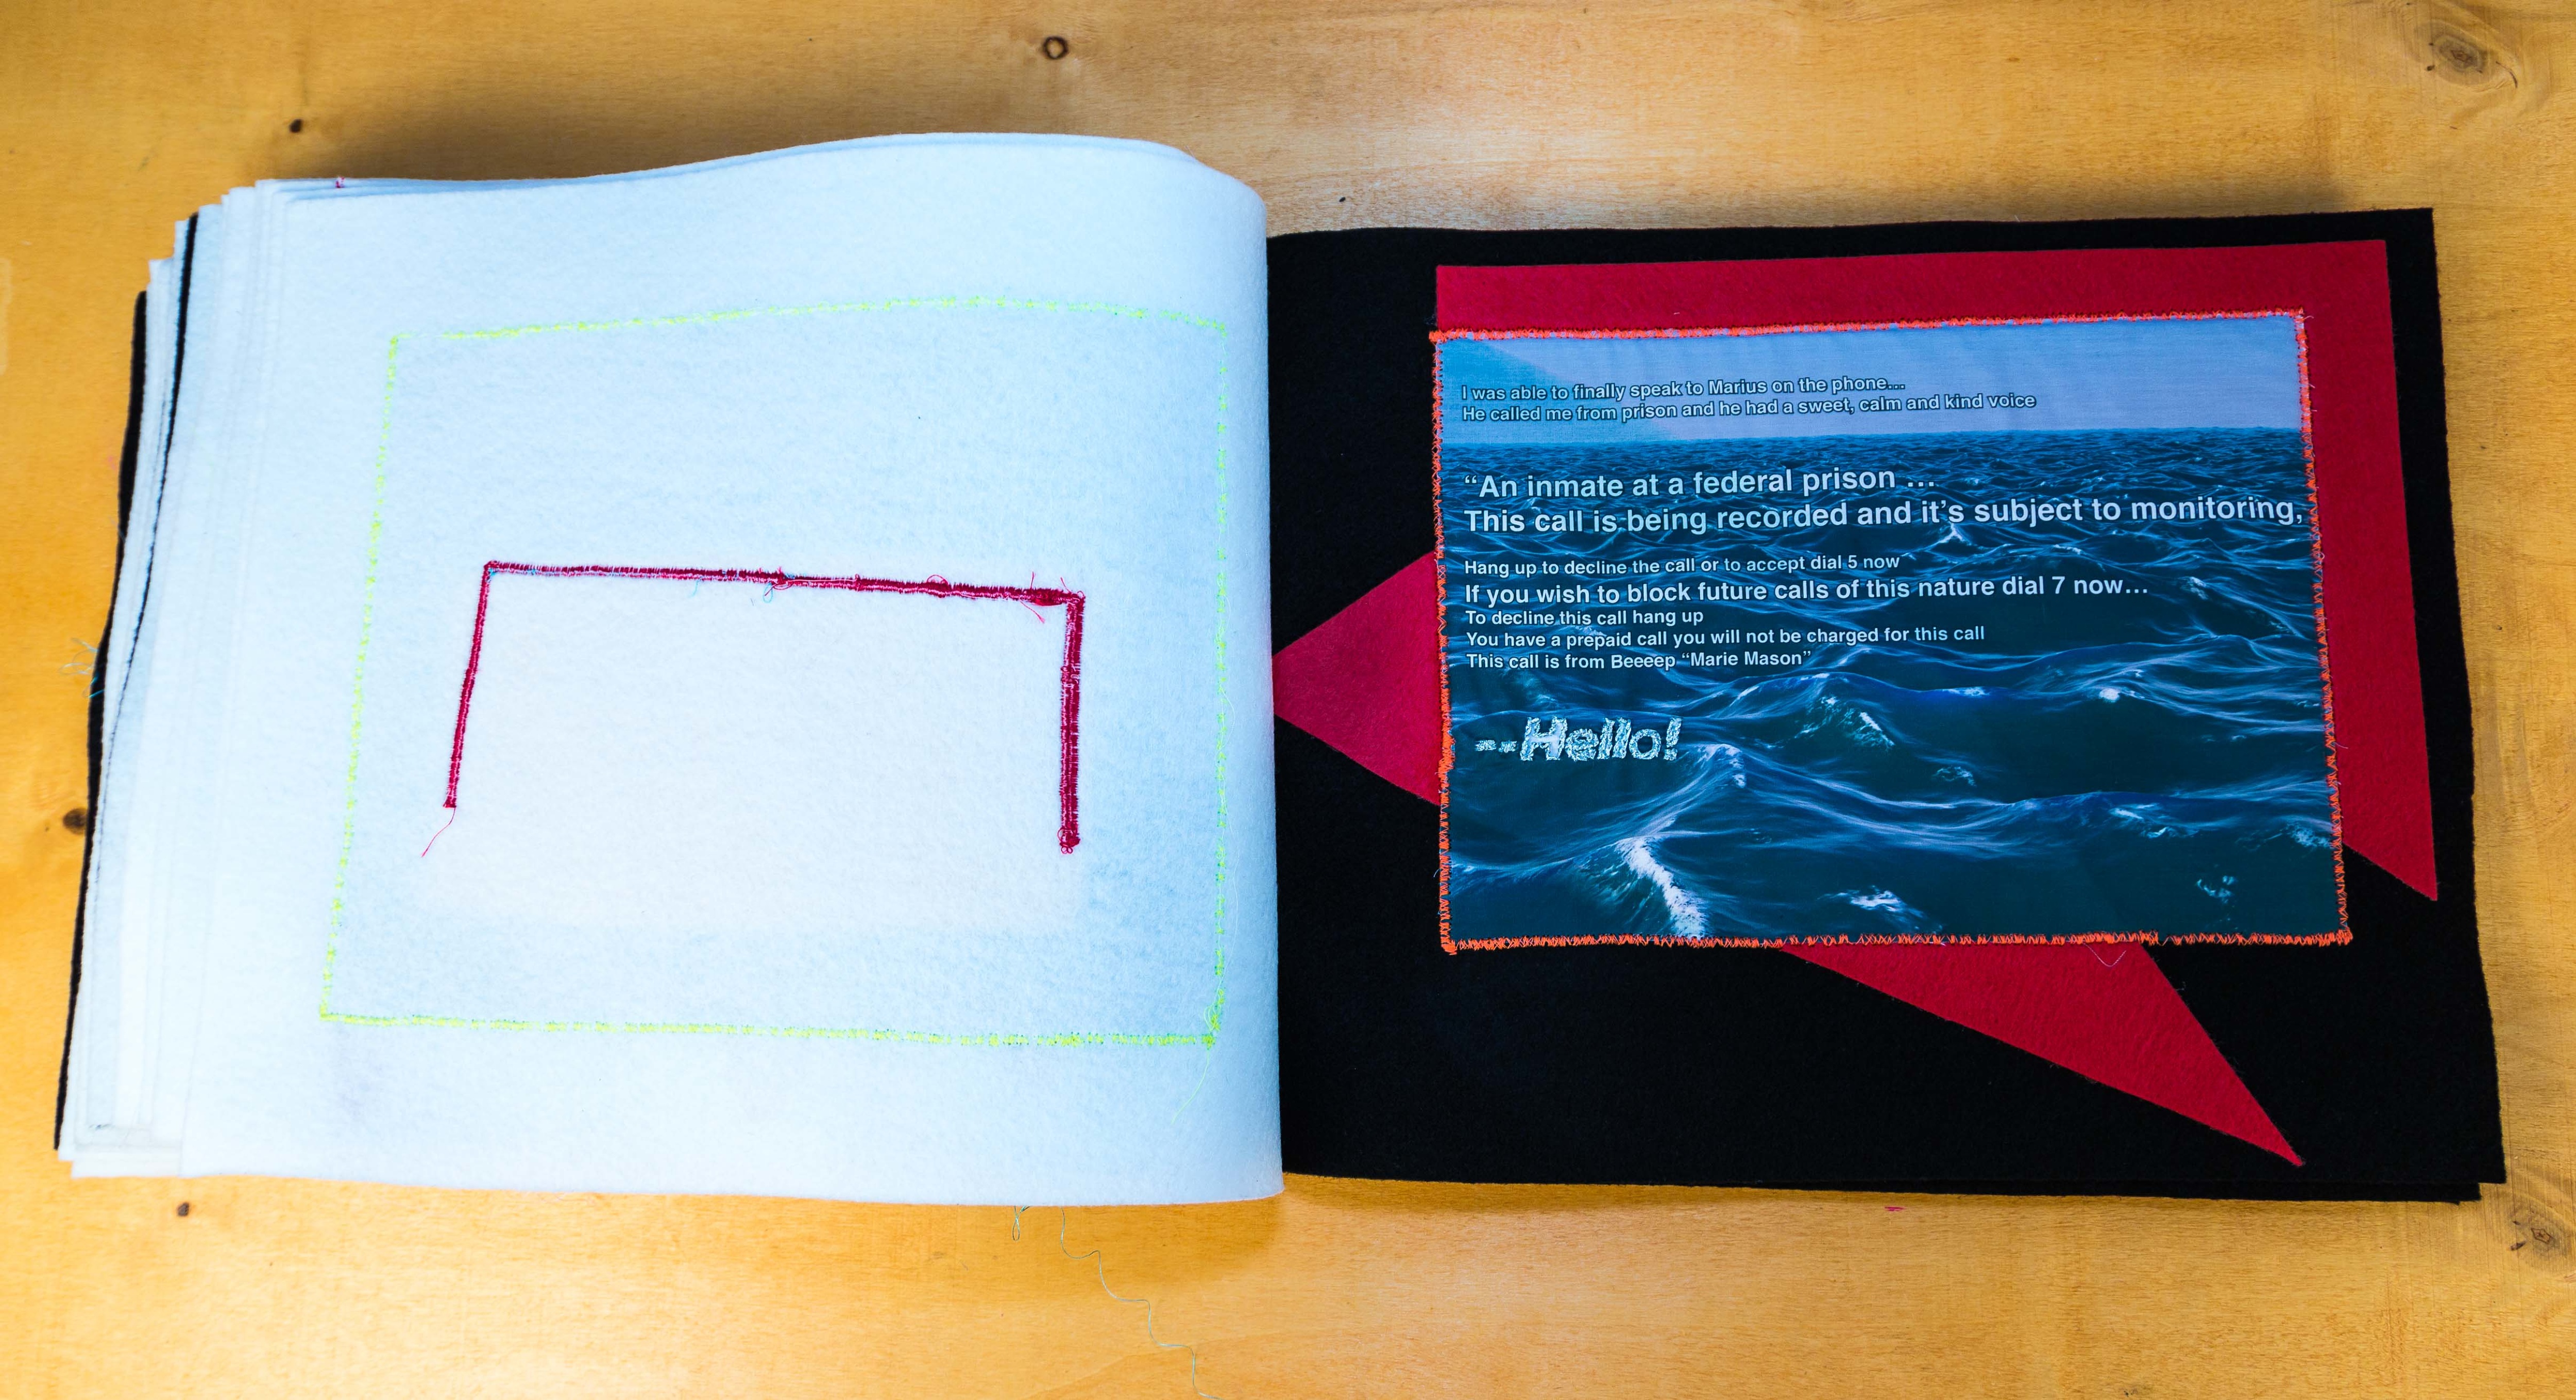 I was able to finally speak to Marius on the phone...
He called me from prison and he had a sweet, calm and kind voice
“An inmate at a federal prison ...
This call is being recorded and it’s subject to monitoring,
Hang up to decline the call or to accept dial 5 now
If you wish to block future calls of this nature dial 7 now...
To decline this call hang up
You have a prepaid call you will not be charged for this call
This call is from Beeeep “Marie Mason”
--Hello!